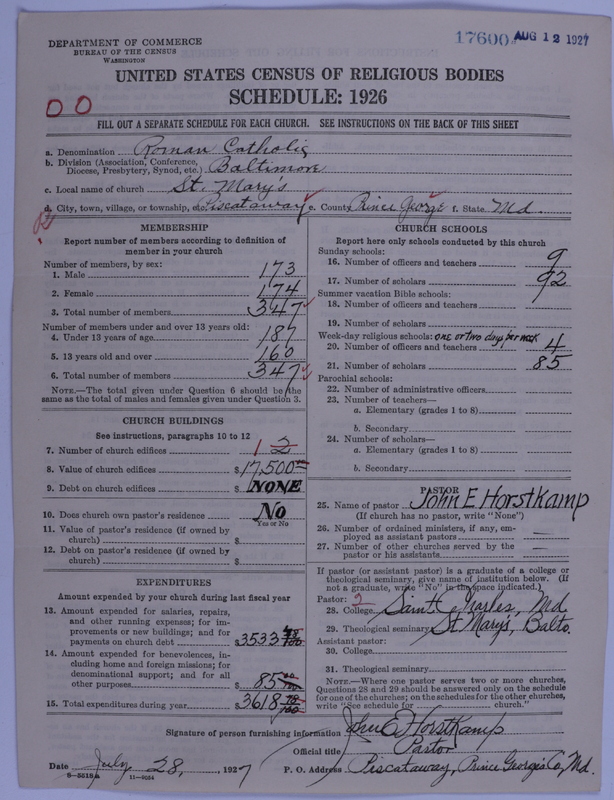 17600 AUG 12 1927
DEPARTMENT OF COMMERCE
BUREAU OF THE CENSUS
WASHINGTON
UNITED STATES CENSUS OF RELIGIOUS BODIES
SCHEDULE: 1926
00
FILL OUT A SEPARATE SCHEDULE FOR EACH CHURCH. SEE INSTRUCTIONS ON THE BACK OF THIS SHEET
a. Denomination Roman Catholic
b. Division (Association, Conference,
Diocese, Presbytery, Synod, etc.) Baltimore
c. Local name of church St. Mary's
d. City, town, village, or township, etc. Piscataway e. County Prince George f. State Md.
MEMBERSHIP
Report number of members according to definition of
member in your church
Number of members, by sex:
1. Male 173
2. Female 174
3. Total number of members 347
Number of members under and over 13 years old:
4. Under 13 years of age 187
5. 13 years old and over 160
6. Total number of members 347
NOTE.—The total given under Question 6 should be the
same as the total of males and females given under Question 3.
CHURCH BUILDINGS
See instructions, paragraphs 10 to 12
7. Number of church edifices 1 2
8. Value of church edifices $17,500
9. Debt on church edifices $ NONE
10. Does church own pastor's residence No
Yes or No
11. Value of pastor's residence (if owned by
church) $
12. Debt on pastor's residence (if owned by
church) $
EXPENDITURES
Amount expended by your church during last fiscal year
13. Amount expended for salaries, repairs,
and other running expenses; for im-
provements or new buildings; and for
payments on church debt $3533
14. Amount expended for benevolences, in-
cluding home and foreign missions; for
denominational support; and for all
other purposes $85
15. Total expenditures during year $3618
CHURCH SCHOOLS
Report here only schools conducted by this church
Sunday schools:
16. Number of officers and teachers 9
17. Number of scholars 92
Summer vacation Bible schools:
18. Number of officers and teachers
19. Number of scholars
Week-day religious schools: one or two days per week
20. Number of officers and teachers 4
21. Number of scholars 85
Parochial schools:
22. Number of administrative officers
23. Number of teachers—
a. Elementary (grades 1 to 8)
b. Secondary
24. Number of scholars—
a. Elementary (grades 1 to 8)
b. Secondary
PASTOR
25. Name of pastor John E Horstkamp
(If church has no pastor, write "None")
26. Number of ordained ministers, if any, em-
ployed as assistant pastors —
27. Number of other churches served by the
pastor or his assistants —
If pastor (or assistant pastor) is a graduate of a college or
theological seminary, give name of institution below. (If
not a graduate, write "No" in the space indicated.)
Pastor: 2
28. College Saint Charles, Md
29. Theological seminary St Mary's, Balto.
Assistant pastor:
30. College
31. Theological seminary
NOTE.—Where one pastor serves two or more churches,
Questions 28 and 29 should be answered only on the schedule
for one of the churches; on the schedules for the other churches,
write "See schedule for church."
Signature of person furnishing information John E Horstkamp
Official title Pastor
Date July 28, 1927 P. O. Address Piscataway, Prince George's Co, Md.
8-5518a 11-9054